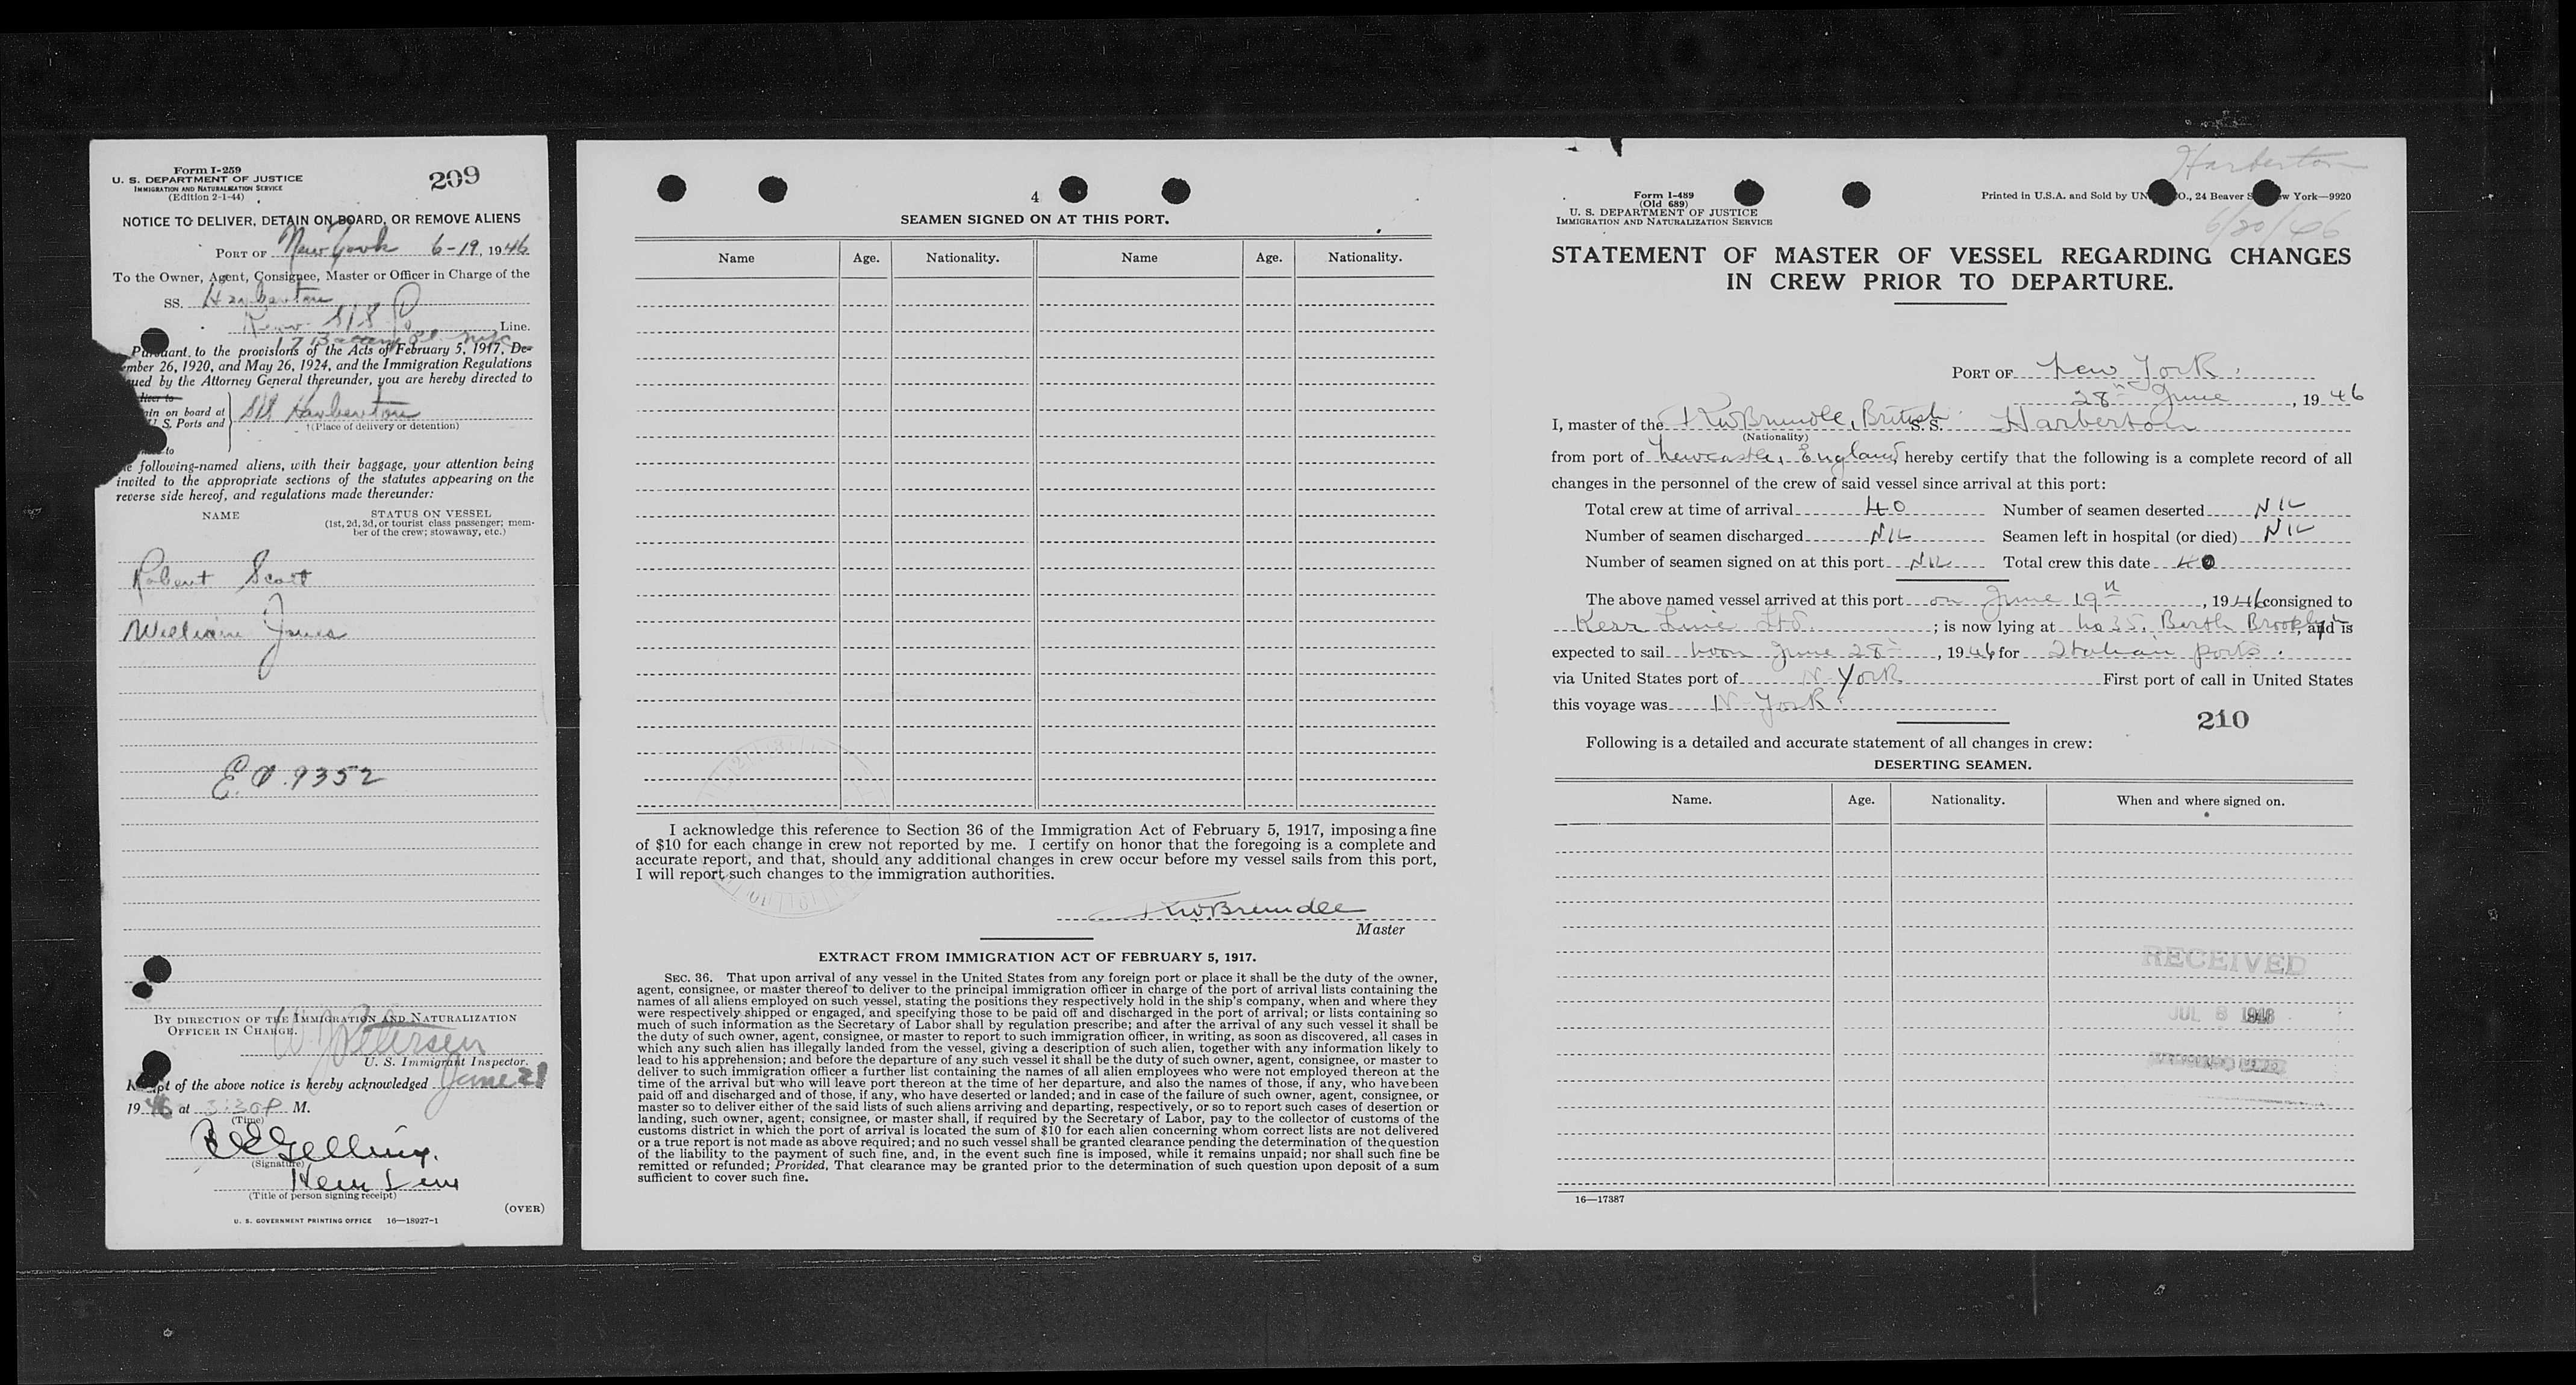 Form I-259
U. S. DEPARTMENT OF JUSTICE
IMMIGRATION AND NATURALIZATION SERVICE
(Edition 2-1-44)
209
NOTICE TO DELIVER, DETAIN ON BOARD, OR REMOVE ALIENS
PORT OF New York 6-19, 1946
To the Owner, Agent, Consignee, Master or Officer in Charge of the
SS. Harberton
Line.
17 Battery Pl. NYC
Pursuant to the provisions of the Acts of February 5, 1917, De-
ember 26, 1920, and May 26, 1924, and the Immigration Regulations
sued by the Attorney General thereunder, you are hereby directed to
liver to
ain on board at
U S. Ports and
SS Harberton
†(Place of delivery or detention)
to
e following-named aliens, with their baggage, your attention being
invited to the appropriate sections of the statutes appearing on the
reverse side hereof, and regulations made thereunder:
NAME STATUS ON VESSEL
(1st, 2d, 3d, or tourist class passenger; mem-
ber of the crew; stowaway, etc.)
Robert Scott
William Jones
E.O. 9352
BY DIRECTION OF THE IMMIGRATION AND NATURALIZATION
OFFICER IN CHARGE.
Petersen
U. S. Immigrant Inspector.
Receipt of the above notice is hereby acknowledged June 21
1946 at 3:30 P M.
(Time)
Gelling.
(Signature)
(Title of person signing receipt)
(OVER)
U. S. GOVERNMENT PRINTING OFFICE 16—18927-1
4
SEAMEN SIGNED ON AT THIS PORT.
Name Age. Nationality. Name Age. Nationality.
I acknowledge this reference to Section 36 of the Immigration Act of February 5, 1917, imposing a fine
of $10 for each change in crew not reported by me. I certify on honor that the foregoing is a complete and
accurate report, and that, should any additional changes in crew occur before my vessel sails from this port,
I will report such changes to the immigration authorities.
RW Brundle
Master
EXTRACT FROM IMMIGRATION ACT OF FEBRUARY 5, 1917.
SEC. 36. That upon arrival of any vessel in the United States from any foreign port or place it shall be the duty of the owner,
agent, consignee, or master thereof to deliver to the principal immigration officer in charge of the port of arrival lists containing the
names of all aliens employed on such vessel, stating the positions they respectively hold in the ship's company, when and where they
were respectively shipped or engaged, and specifying those to be paid off and discharged in the port of arrival; or lists containing so
much of such information as the Secretary of Labor shall by regulation prescribe; and after the arrival of any such vessel it shall be
the duty of such owner, agent, consignee, or master to report to such immigration officer, in writing, as soon as discovered, all cases in
which any such alien has illegally landed from the vessel, giving a description of such alien, together with any information likely to
lead to his apprehension; and before the departure of any such vessel it shall be the duty of such owner, agent, consignee, or master to
deliver to such immigration officer a further list containing the names of all alien employees who were not employed thereon at the
time of the arrival but who will leave port thereon at the time of her departure, and also the names of those, if any, who have been
paid off and discharged and of those, if any, who have deserted or landed; and in case of the failure of such owner, agent, consignee, or
master so to deliver either of the said lists of such aliens arriving and departing, respectively, or so to report such cases of desertion or
landing, such owner, agent, consignee, or master shall, if required by the Secretary of Labor, pay to the collector of customs of the
customs district in which the port of arrival is located the sum of $10 for each alien concerning whom correct lists are not delivered
or a true report is not made as above required; and no such vessel shall be granted clearance pending the determination of the question
of the liability to the payment of such fine, and, in the event such fine is imposed, while it remains unpaid; nor shall such fine be
remitted or refunded; Provided, That clearance may be granted prior to the determination of such question upon deposit of a sum
sufficient to cover such fine.
Harberton
Form I-489
(Old 689)
U. S. DEPARTMENT OF JUSTICE
IMMIGRATION AND NATURALIZATION SERVICE
Printed in U.S.A. and Sold by UN O., 24 Beaver S w York—9920
STATEMENT OF MASTER OF VESSEL REGARDING CHANGES
IN CREW PRIOR TO DEPARTURE.
PORT OF New York.
28th June, 1946
I, master of the RW Brundle, British S. S. Harberton
(Nationality)
from port of Newcastle, England, hereby certify that the following is a complete record of all
changes in the personnel of the crew of said vessel since arrival at this port:
Total crew at time of arrival 40 Number of seamen deserted NIL
Number of seamen discharged NIL Seamen left in hospital (or died) NIL
Number of seamen signed on at this port NIL Total crew this date 40
The above named vessel arrived at this port on June 19th, 1946 consigned to
Kerr Line Ltd. ; is now lying at No 35. Berth Brooklyn, and is
expected to sail noon June 28th, 1946 for Italian ports.
via United States port of N-York First port of call in United States
this voyage was N-York.
210
Following is a detailed and accurate statement of all changes in crew:
DESERTING SEAMEN.
Name. Age. Nationality. When and where signed on.
RECEIVED
JUL 8 1946
16—17387